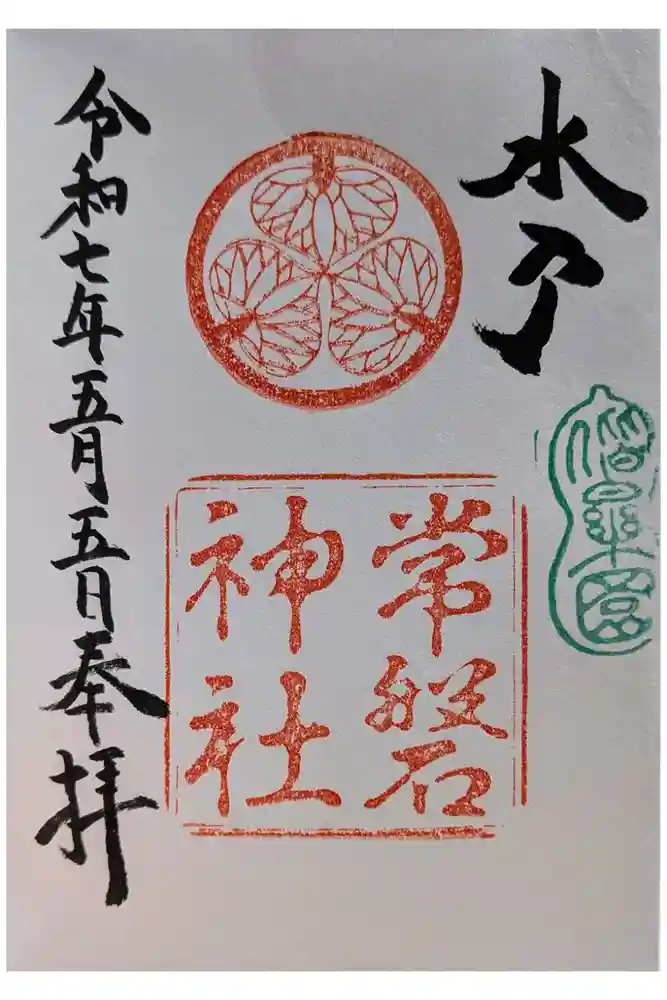 水戸
偕樂園
常磐
神社
令和七年五月五日奉拝